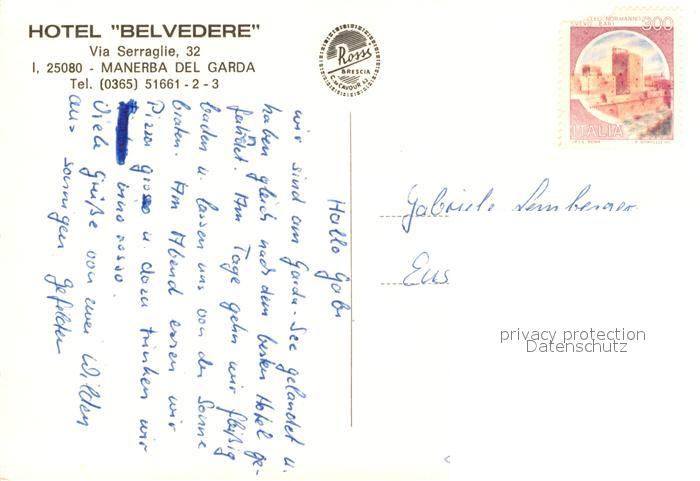 HOTEL "BELVEDERE"
Via Serraglie, 32
I, 25080 - MANERBA DEL GARDA
Tel. (0365) 51661 - 2 - 3
Rossi
BRESCIA
C. CAVOUR 42
300
ITALIA
Hallo Gabi
wir sind am Garda-See gelandet u.
haben gleich nach dem besten Hotel ge-
fahndet. Am Tage gehn wir fleißig
baden u. lassen uns von der Sonne
braten. Am Abend essen wir
Pizza grosso u. dazu trinken wir
vino rosso.
Viele Grüße von zwei Wilden
aus sonnigen Gefilden
Gabriele
Ens
privacy protection
Datenschutz